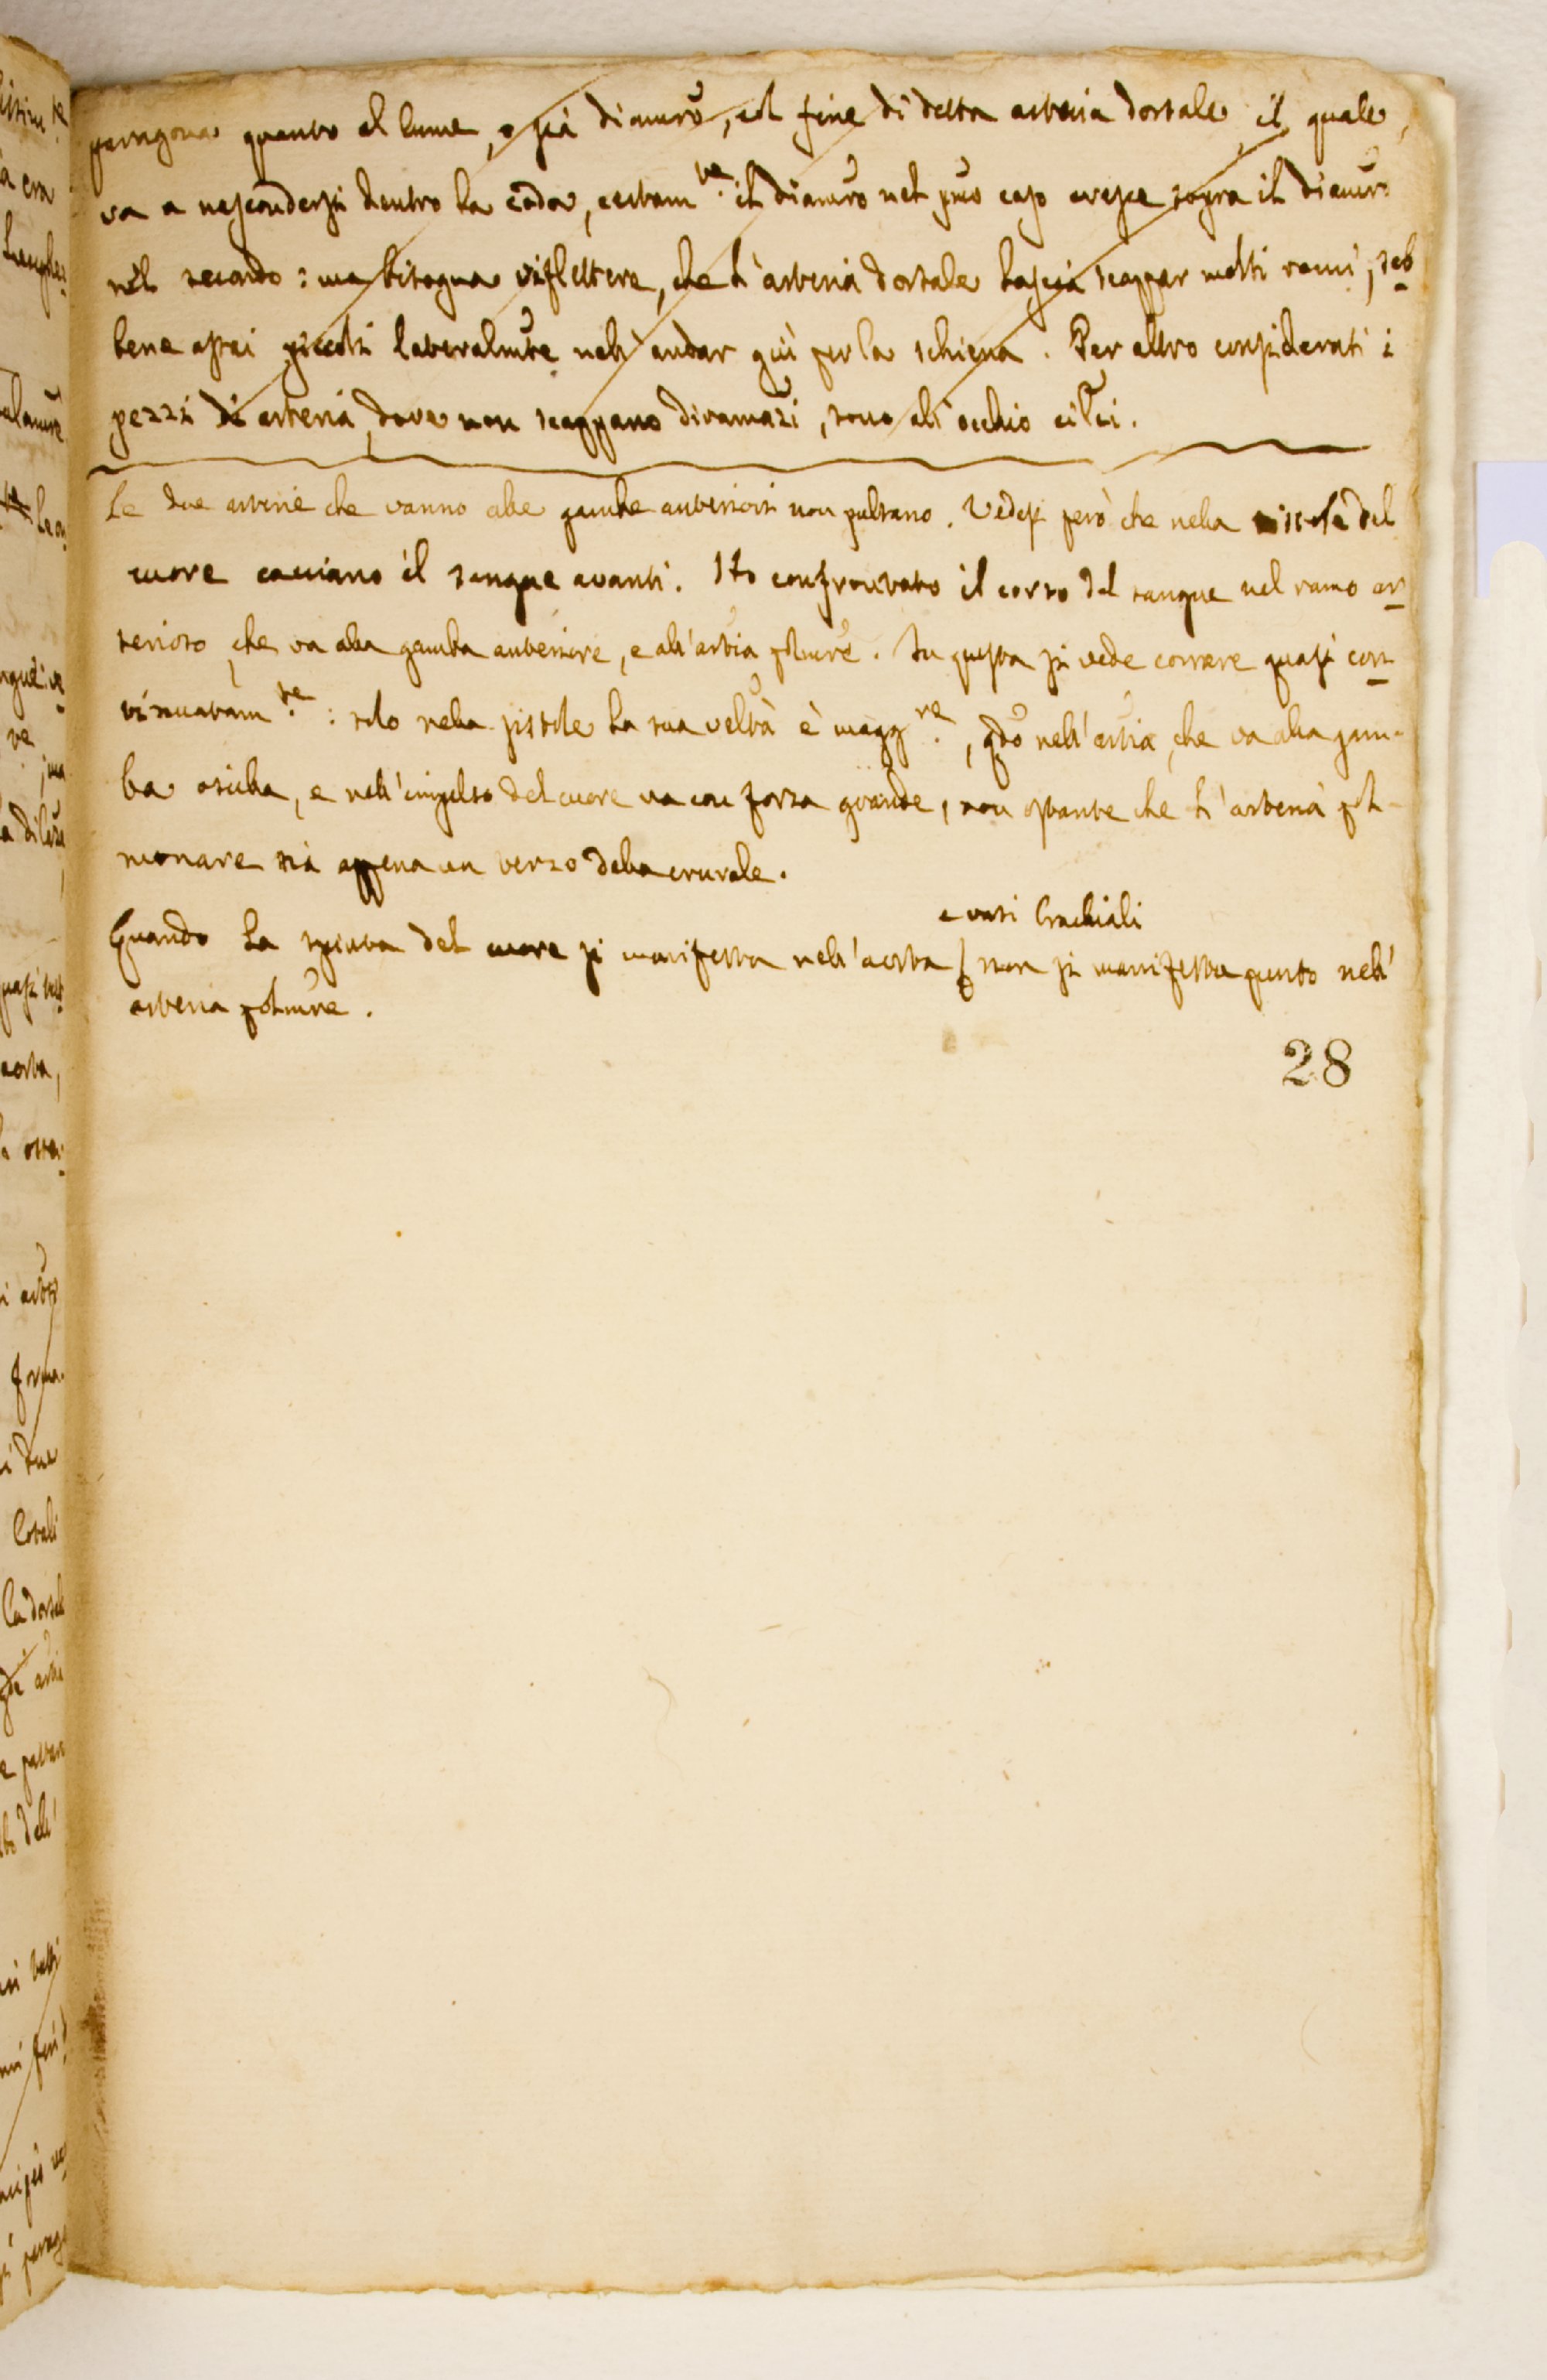 paragona quanto al lume, o sia diamro, col fine di detta arteria dorsale, il quale
va a nascondersi dentro la coda, certam.te il diamro nel pmo caso cresce sopra il diamro
nel secondo: ma bisogna riflettere, che l'arteria dorsale lascia scappar molti rami, seb
bene assai piccoli lateralmte nell'andar giù per la schiena. Per altro considerati i
pezzi di arteria, dove non scappano diramazi, sono all'occhio cilci.
Le due arterie che vanno alle gambe anteriori non pulsano. Vedesi però che nella sistole del
cuore cacciano il sangue avanti. Ho confrontato il corso del sangue nel ramo ar
terioso, che va alla gamba anteriore, e all'artia polmre. In questa si vede correre quasi con
tinuatam.te: solo nella sistole la sua veltà è magg.re, qdo nell'artia, che va alla gam-
ba oscilla, e nell'impulso del cuore va con forza grande, non ostante che l'arteria pol-
monare sia appena un terzo della crurale.
e vasi brachiali
Quando la spinta del cuore si manifesta nell'aorta non si manifesta punto nell'
arteria polmre.
28